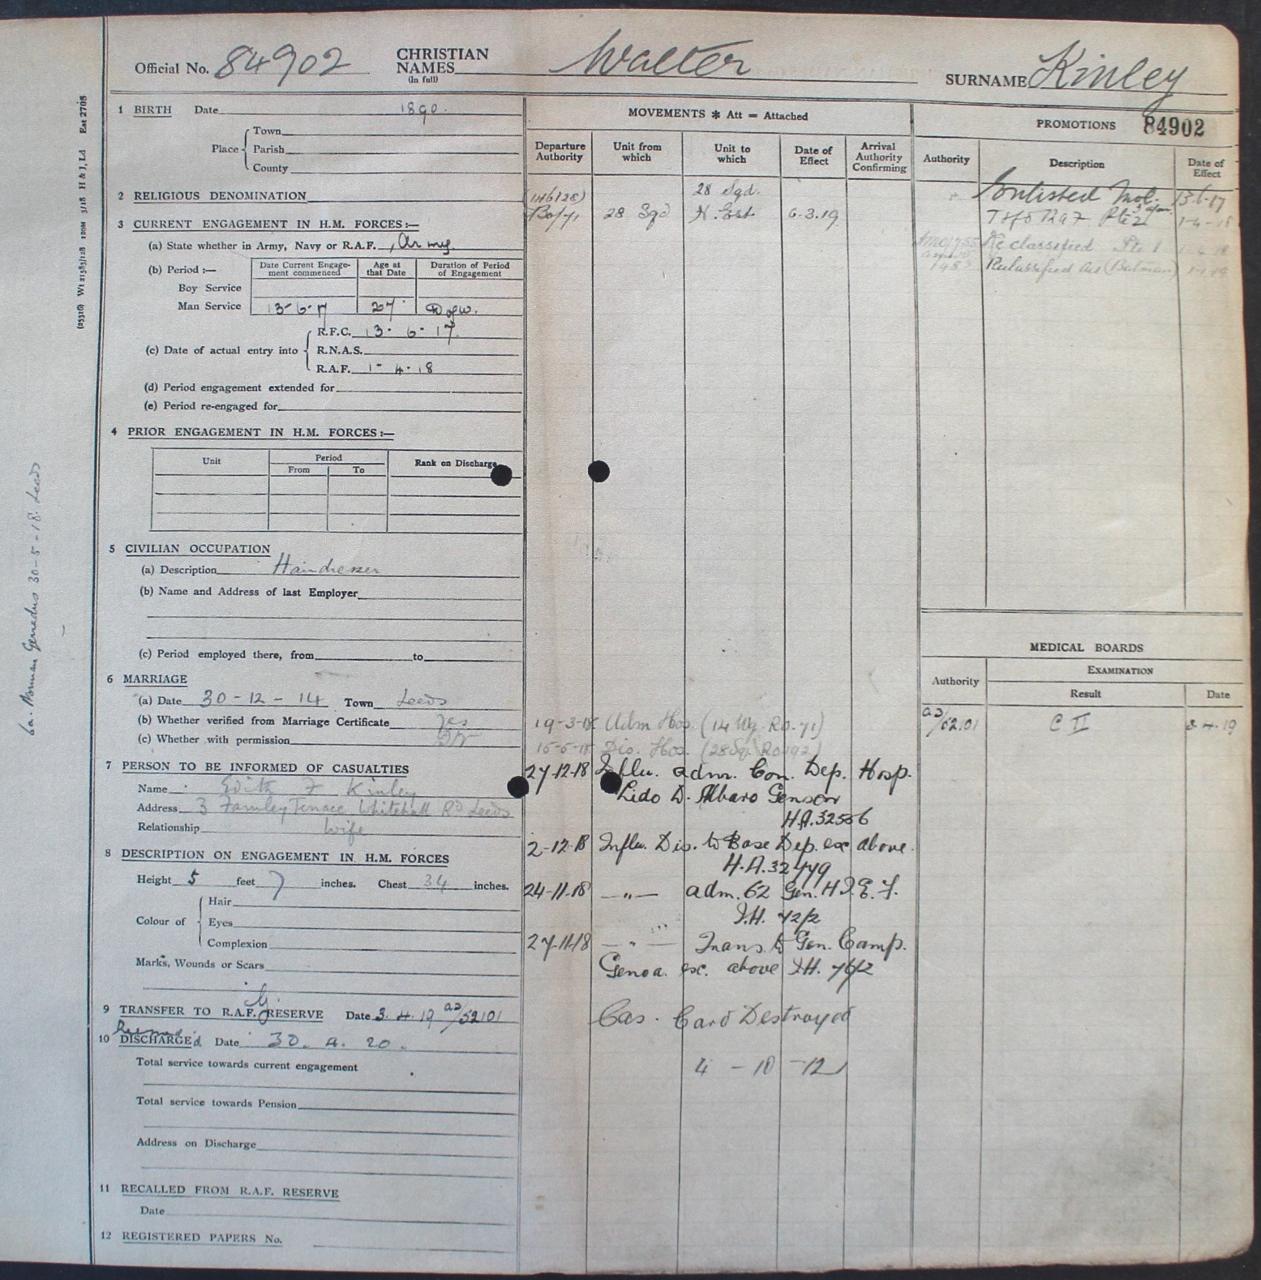 Official No. 84902 CHRISTIAN NAMES (In full) Walter SURNAME Kinley
1 BIRTH Date 1890.
Place Town
Parish
County
2 RELIGIOUS DENOMINATION
3 CURRENT ENGAGEMENT IN H.M. FORCES :—
(a) State whether in Army, Navy or R.A.F. Army
(b) Period :— Date Current Engagement commenced Age at that Date Duration of Period of Engagement
Boy Service
Man Service 13-6-17 27 D of W.
(c) Date of actual entry into R.F.C. 13-6-17
R.N.A.S.
R.A.F. 1-4-18
(d) Period engagement extended for
(e) Period re-engaged for
4 PRIOR ENGAGEMENT IN H.M. FORCES :—
Unit Period Rank on Discharge
From To
5 CIVILIAN OCCUPATION
(a) Description Hairdresser
(b) Name and Address of last Employer
(c) Period employed there, from to
6 MARRIAGE
(a) Date 30-12-14 Town Leeds
(b) Whether verified from Marriage Certificate Yes
(c) Whether with permission
7 PERSON TO BE INFORMED OF CASUALTIES
Name Edith F Kinley
Address 3 Farnley Terrace Whitehall Rd Leeds
Relationship Wife
8 DESCRIPTION ON ENGAGEMENT IN H.M. FORCES
Height 5 feet 7 inches. Chest 34 inches.
Colour of Hair
Eyes
Complexion
Marks, Wounds or Scars
9 TRANSFER TO R.A.F. G RESERVE Date 3.4.19 a3/52101
10 DISCHARGEd Date 30.4.20.
Total service towards current engagement
Total service towards Pension
Address on Discharge
11 RECALLED FROM R.A.F. RESERVE
Date
12 REGISTERED PAPERS No.
MOVEMENTS * Att = Attached
Departure Authority Unit from which Unit to which Date of Effect Arrival Authority Confirming
(146128) 28 Sqd.
28 Sqd H. Est. 6.3.19
19-3-18 Adm Hos. (14 Wg. RO. 71)
15-5-18 Dis. Hos. (28 Sq. RO 192)
27-12-18 Influ. adm. Con. Dep. Hosp.
Lido D. Albaro Genoa
H.A. 32556
2-12-18 Influ. Dis. to Base Dep. ex above.
H.A. 32479
24-11-18 —"— adm. 62 Gen. H I.E.F.
I.H. 72/2
27-11-18 —"— Trans to Gen. Camp.
Genoa. ex. above I.H. 76/2
Cas. Card Destroyed
4-10-12
PROMOTIONS 84902
Authority Description Date of Effect
Enlisted 13-6-17
T of o RAF Pte 2 1-4-18
Reclassified Pte 1 1-4-18
Reclassified as (Batman) 1-1-19
MEDICAL BOARDS
Authority EXAMINATION
Result Date
a3/52101 C II 3-4-19
(25316) Wt 21383/128 120M 3/18 H & J, Ld Est 2705
6a. Norman 30-5-18. Leeds